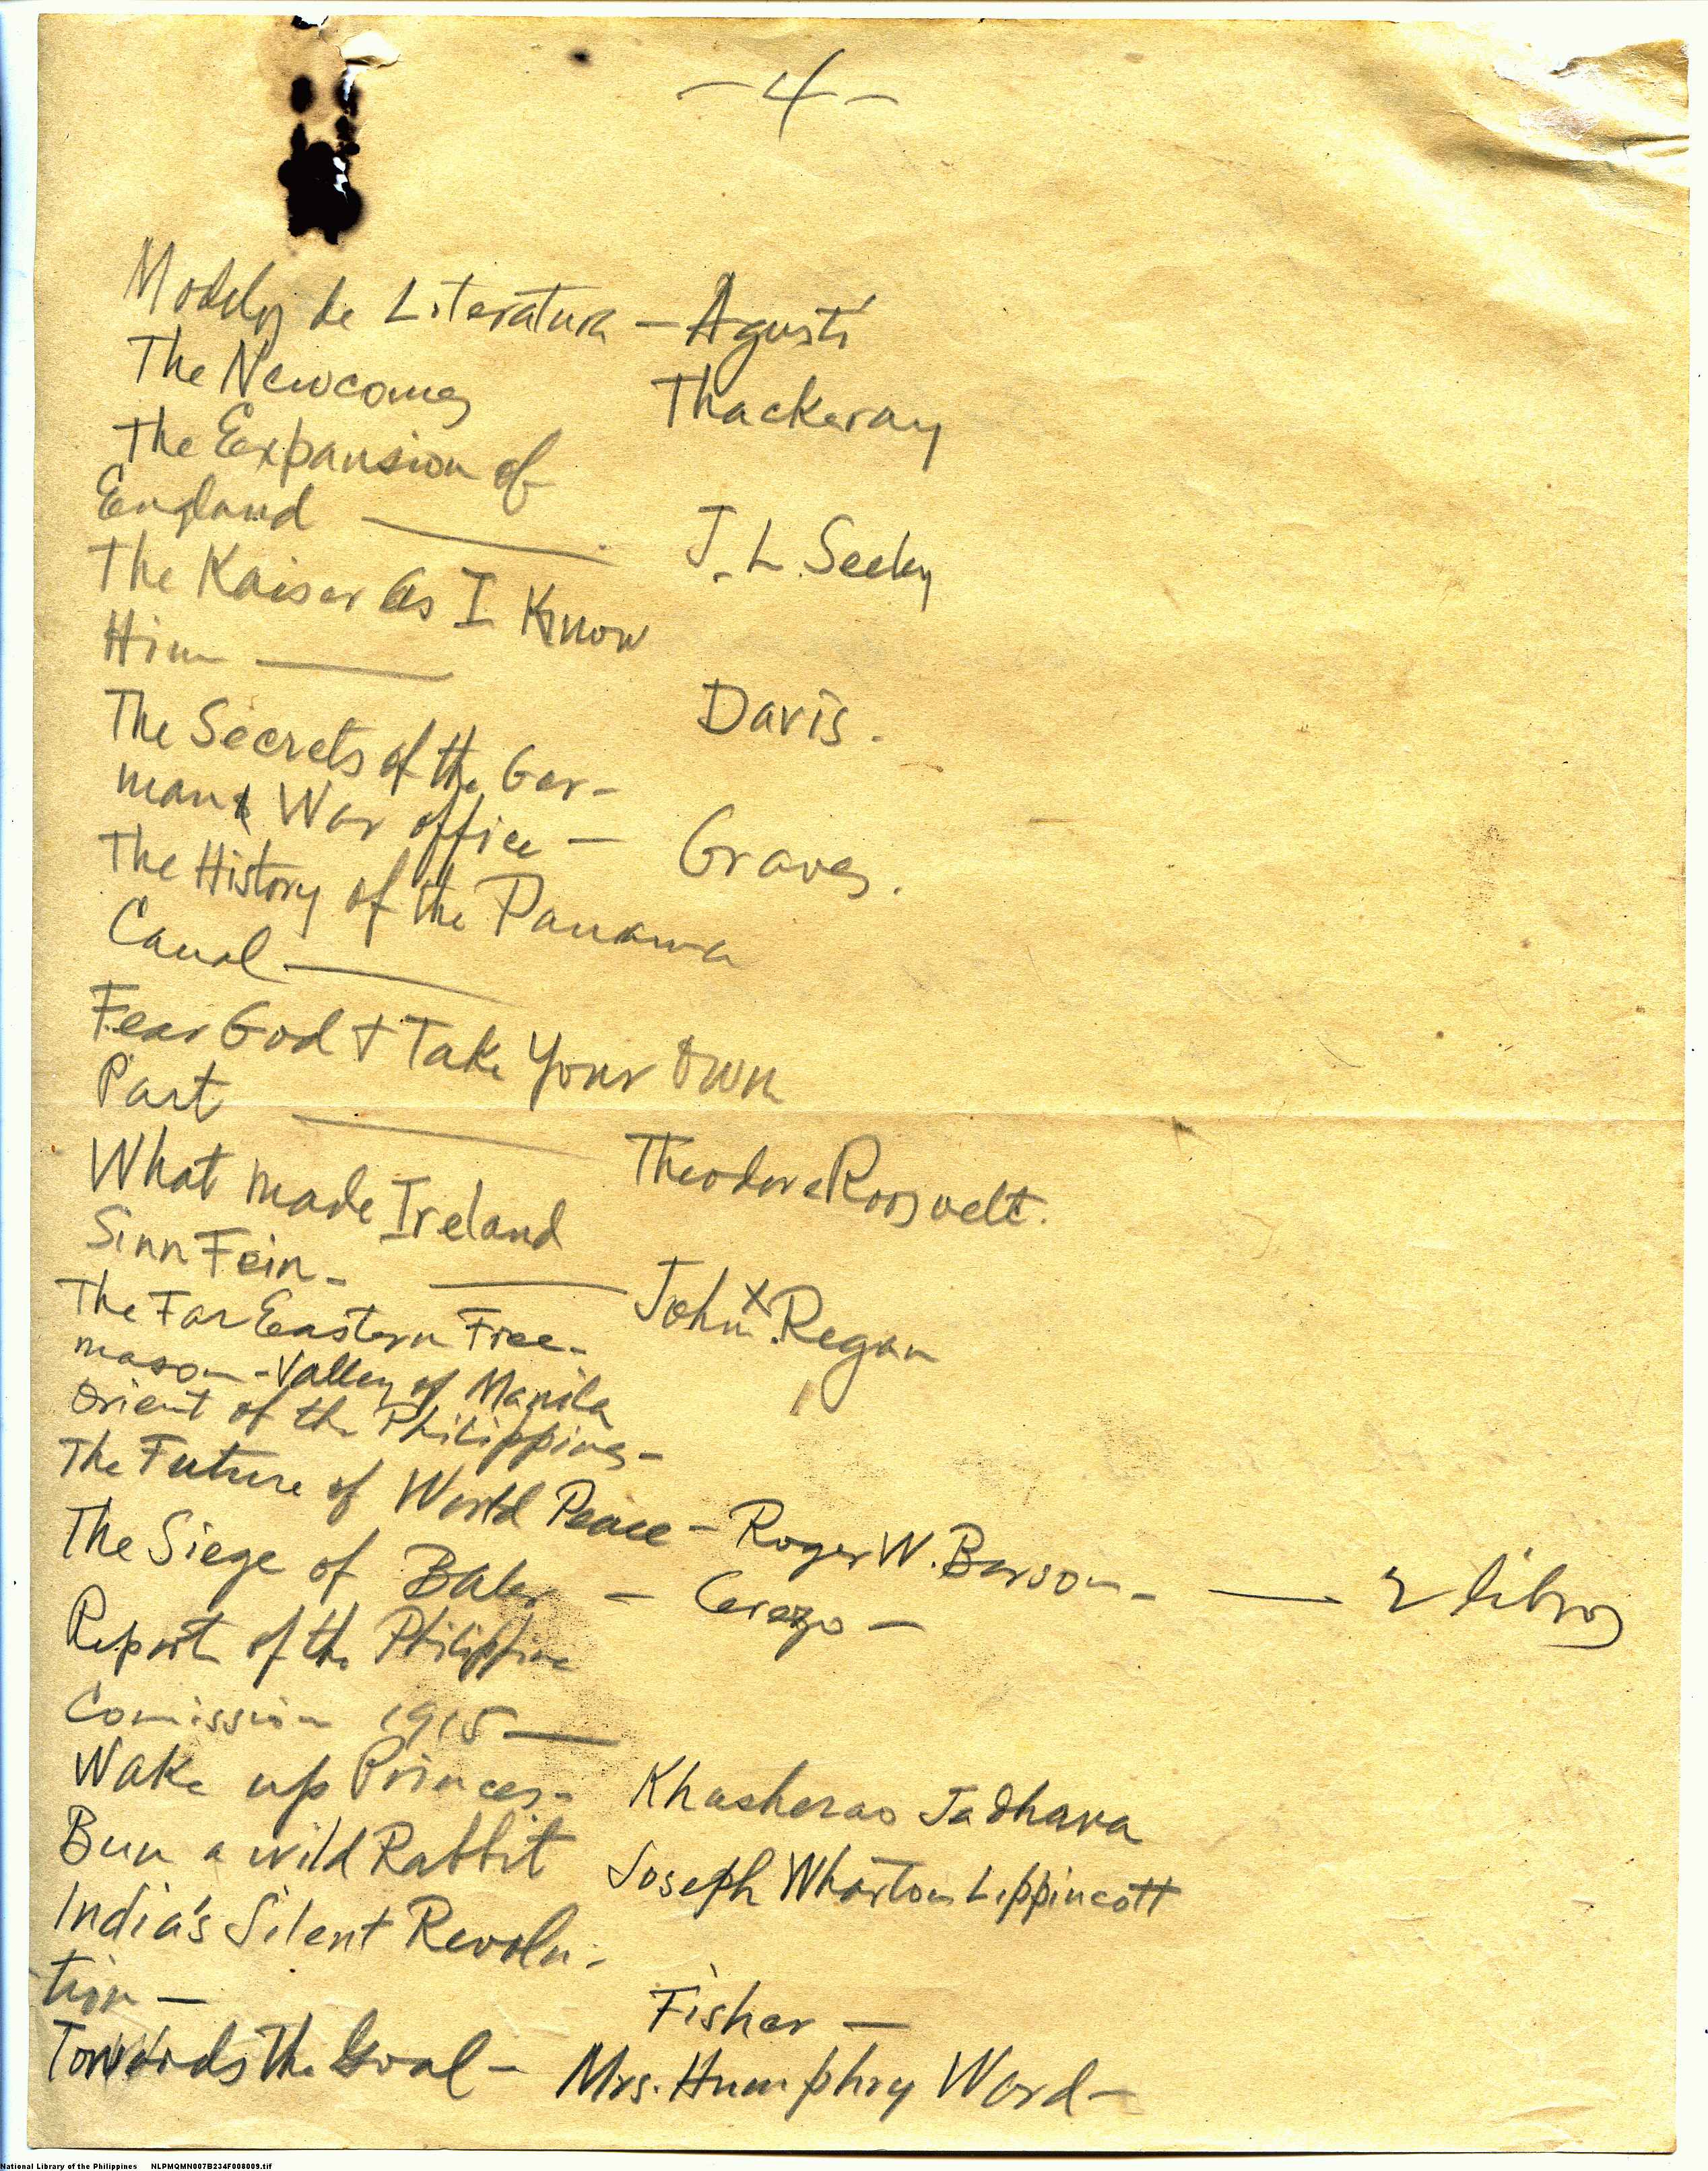 -4-
Modelos de Literatura - Agustí
The Newcomes Thackeray
The Expansion of
England —— J. L. Seeley
The Kaiser As I Know
Him —— Davis.
The Secrets of the Ger-
man War office - Graves.
The History of the Panama
Canal ——
Fear God + Take Your Own
Part —— Theodore Roosvelt.
What made Ireland
Sinn Fein - —— John X. Regan
The Far Eastern Free-
mason - Valley of Manila
Orient of the Philippines -
The Future of World Peace - Roger W. Barson - —— 2 libros
The Siege of Baler - Cerezo -
Report of the Philippine
Comission 1915 ——
Wake up Princes - Khasherao Jadhava
Bun a wild Rabbit Joseph Wharton Lippincott
India's Silent Revolu-
tion - Fisher -
Towards The Goal - Mrs. Humphry Ward -
National Library of the Philippines NLPMQMN007B234F008009.tif